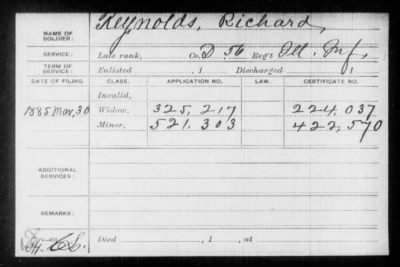 NAME OF SOLDIER: Reynolds, Richard,
SERVICE: Late rank, Co. D. 56 Reg't Ill. Inf.
TERM OF SERVICE: Enlisted , 1 Discharged , 1
DATE OF FILING. CLASS. APPLICATION NO. LAW. CERTIFICATE NO.
Invalid,
1885 Mar, 30 Widow, 325, 217 224, 037
Minor, 521. 303 422, 570
ADDITIONAL SERVICES:
REMARKS:
Died , 1 , at